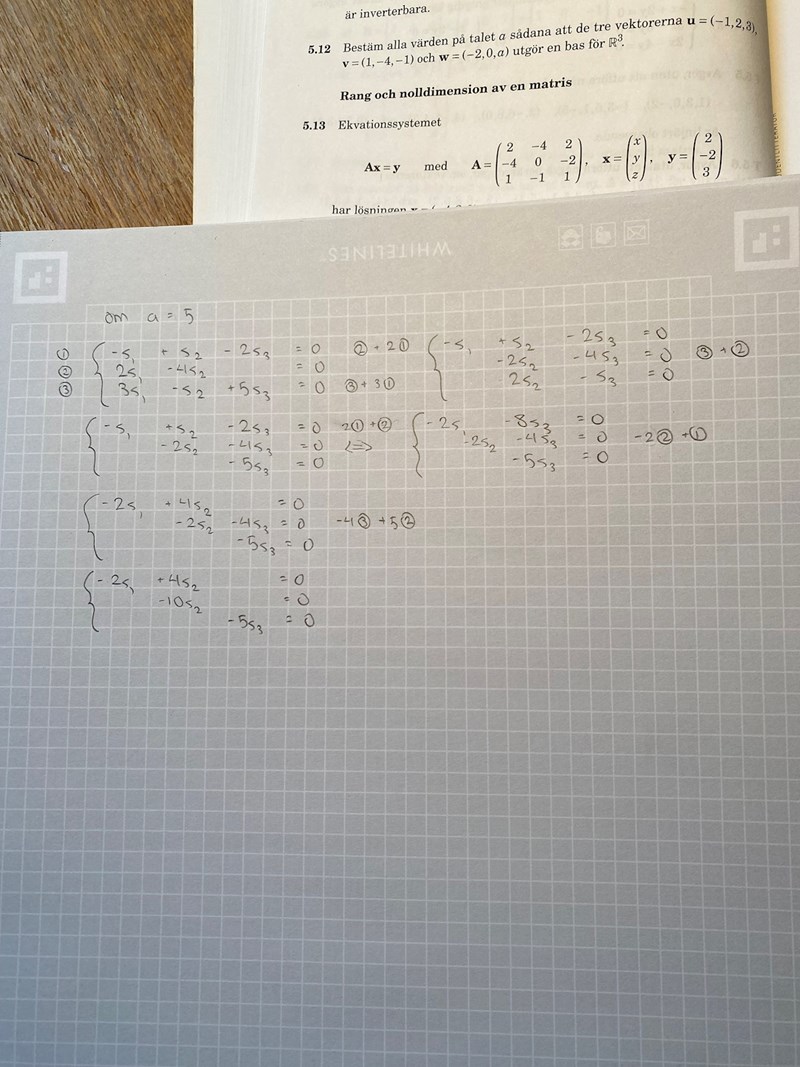 är inverterbara.
5.12 Bestäm alla värden på talet a sådana att de tre vektorerna u = (−1,2,3),
v = (1,−4,−1) och w = (−2,0,a) utgör en bas för ℝ³.
Rang och nolldimension av en matris
5.13 Ekvationssystemet
Ax = y med A = ( 2 −4 2 ; −4 0 −2 ; 1 −1 1 ), x = ( x ; y ; z ), y = ( 2 ; −2 ; 3 )
har lösningen
WHITELINES
om a = 5
① -s₁ + s₂ - 2s₃ = 0 ② + 2① -s₁ + s₂ - 2s₃ = 0
② 2s₁ -4s₂ = 0 -2s₂ -4s₃ = 0 ③ + ②
③ 3s₁ -s₂ +5s₃ = 0 ③ + 3① 2s₂ - s₃ = 0
-s₁ +s₂ -2s₃ = 0 2① + ② -2s₁ -8s₃ = 0
-2s₂ -4s₃ = 0 <=> -2s₂ -4s₃ = 0 -2② + ①
-5s₃ = 0 -5s₃ = 0
-2s₁ +4s₂ = 0
-2s₂ -4s₃ = 0 -4③ + 5②
-5s₃ = 0
-2s₁ +4s₂ = 0
-10s₂ = 0
-5s₃ = 0